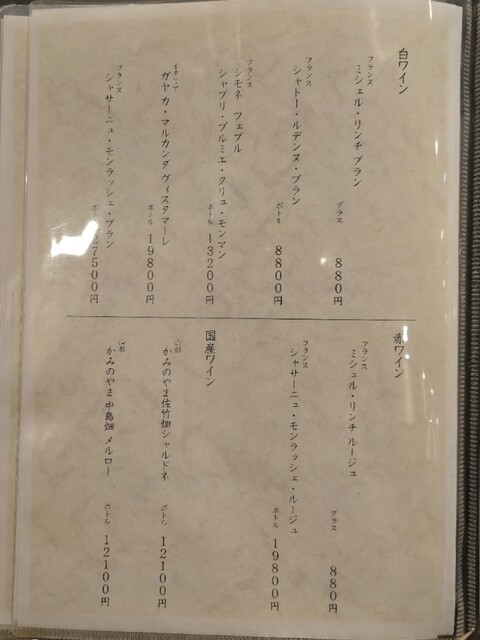 白ワイン
フランス
ミシェル・リンチ ブラン
グラス 880円
フランス
シャトー・ルデンヌ・ブラン
ボトル 8800円
フランス
シモネ フェブル
シャブリ・プルミエ・クリュ・モンマン
ボトル 13200円
イタリア
ガヤ カ・マルカンダ ヴィスタマーレ
ボトル 19800円
フランス
シャサーニュ・モンラッシェ・ブラン
ボトル 27500円
赤ワイン
フランス
ミシェル・リンチ ルージュ
グラス 880円
フランス
シャサーニュ・モンラッシェ・ルージュ
ボトル 19800円
国産ワイン
山形
かみのやま佐竹畑シャルドネ
ボトル 12100円
山形
かみのやま中島畑 メルロー
ボトル 12100円